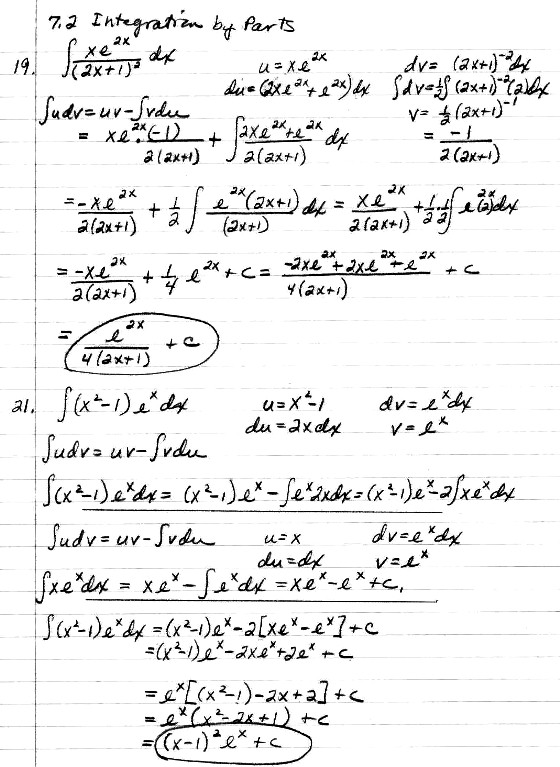 7.2 Integration by Parts
19. ∫ xe^{2x}/(2x+1)² dx    u = xe^{2x}    dv = (2x+1)^{-2} dx
du = (2xe^{2x} + e^{2x}) dx    ∫dv = ½∫(2x+1)^{-2}(2)dx
∫udv = uv - ∫vdu    v = ½(2x+1)^{-1}
= xe^{2x}·(-1)/2(2x+1) + ∫ 2xe^{2x}+e^{2x}/2(2x+1) dx    = -1/2(2x+1)
= -xe^{2x}/2(2x+1) + ½ ∫ e^{2x}(2x+1)/(2x+1) dx = xe^{2x}/2(2x+1) + ½·½∫e^{2x}(2)dx
= -xe^{2x}/2(2x+1) + ¼ e^{2x} + c = -2xe^{2x}+2xe^{2x}+e^{2x}/4(2x+1) + c
= e^{2x}/4(2x+1) + c
21. ∫(x²-1)e^x dx    u = x²-1    dv = e^x dx
du = 2xdx    v = e^x
∫udv = uv - ∫vdu
∫(x²-1)e^x dx = (x²-1)e^x - ∫e^x 2xdx = (x²-1)e^x - 2∫xe^x dx
∫udv = uv - ∫vdu    u = x    dv = e^x dx
du = dx    v = e^x
∫xe^x dx = xe^x - ∫e^x dx = xe^x - e^x + c₁
∫(x²-1)e^x dx = (x²-1)e^x - 2[xe^x - e^x] + c
= (x²-1)e^x - 2xe^x + 2e^x + c
= e^x[(x²-1) - 2x + 2] + c
= e^x(x² - 2x + 1) + c
= (x-1)² e^x + c